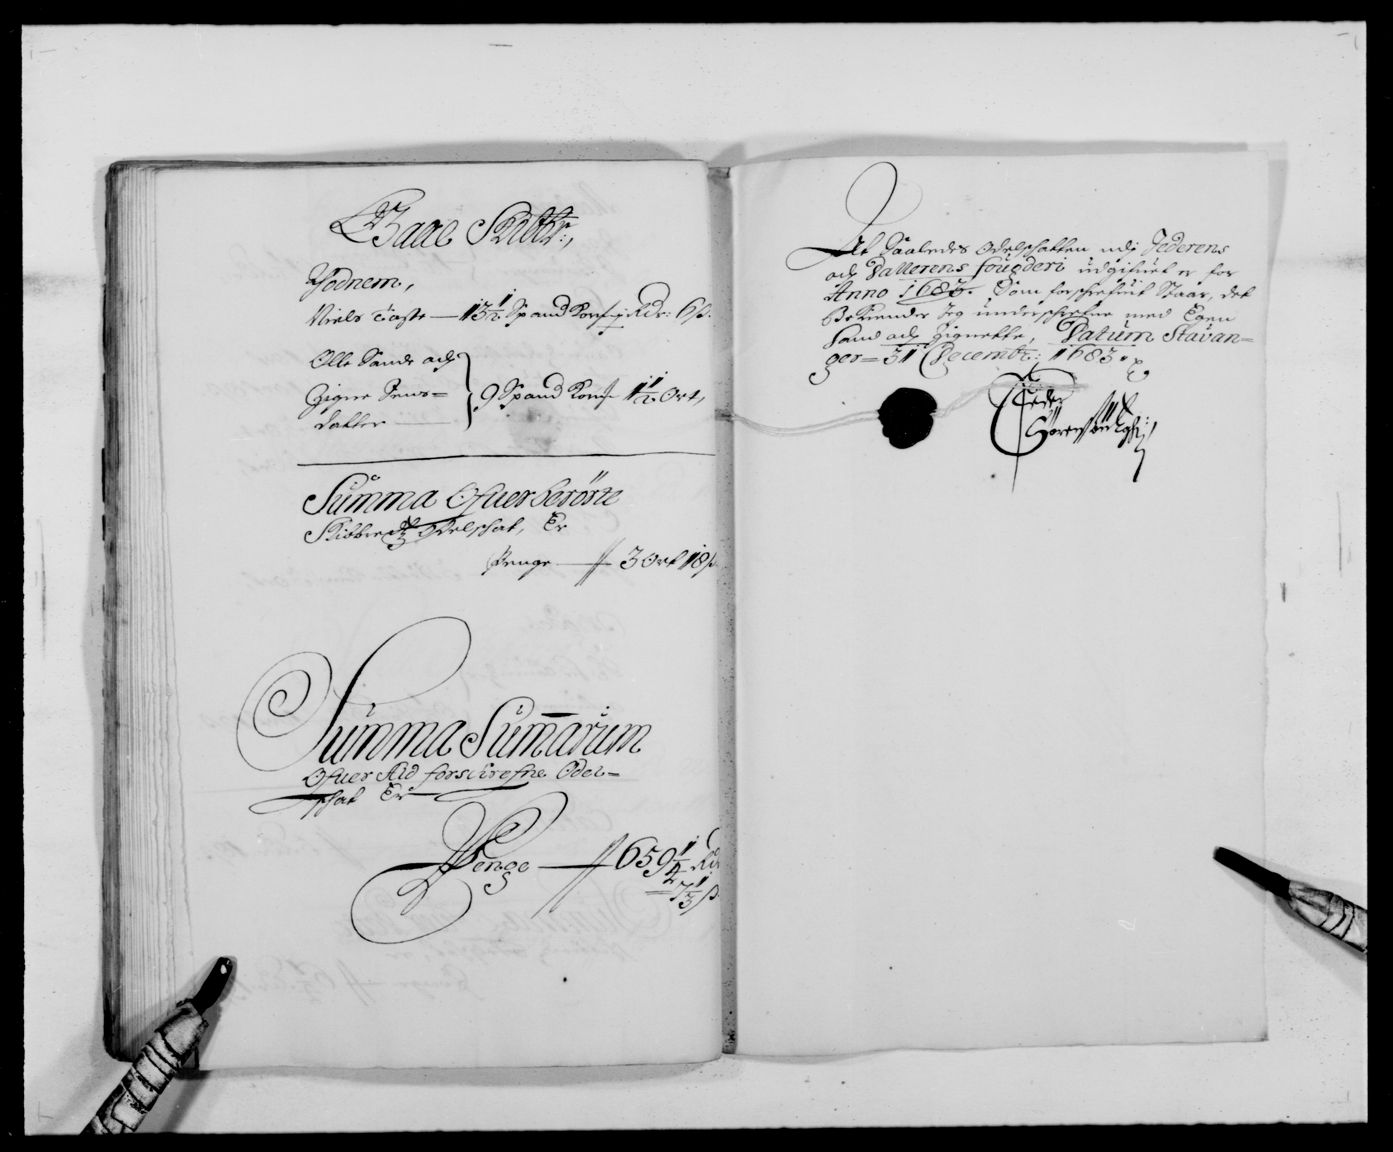 Baae Skibbr:,
Hodnem,
Niels Toste — 13½ Spand Korn ½ Rdr: 6 s.
Olle Sande och
Zigne Jens=
datter — 9 Spand Korn 1½ Ort,
Summa Ofuerberørte
Skibbredz Odelschat, Er
Penge — 3 Ort 18 s.
Summa Sumarum
Ofuer Ald forschrefne Odel=
schat Er
Penge — 659¼ Rd
7⅓ s.
At Saaledes Odelschatten udi Jederens
och Dallerens fougderi udgifuet er for
Anno 1683. Som forschrefuit Staar, det
Bekiender Jeg underschrefne med Egen
Haand och Zignette, Datum Stavan=
ger = 31 Decembr: 1683.
Peder
Sørenssøn